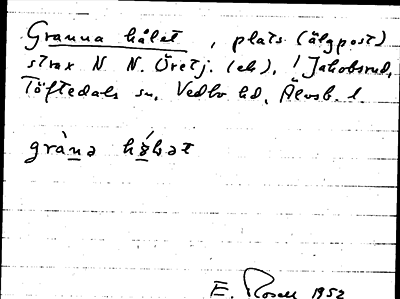 Granna hålet, plats (älgpost)
strax N N. Öretj. (ek), i Jakobsrud,
Töftedals sn, Vedbo hd, Älvsb. l.
gràna hə́lət
E. Rosell 1952